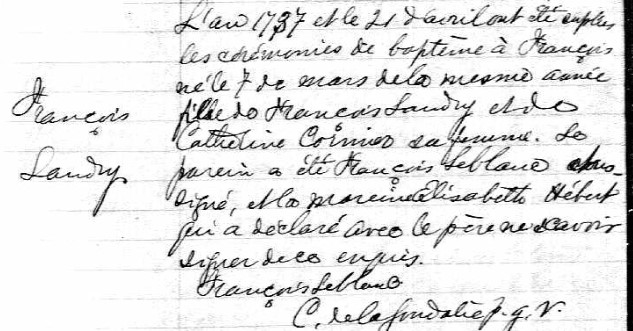 L'an 1737 et le 21 d'avril ont été suplées
les cérémonies de baptème à François
né le 7 de mars de la mesme année
fils de François Landry et de
François
Catherine Cormier sa femme. Le
parein a été François Leblanc sous-
Landry
signé, et la mareine Elisabeth Hébert
qui a déclaré avec le père ne scavoir
signer de ce enquis.
François Leblanc
C. de la p. g. V.